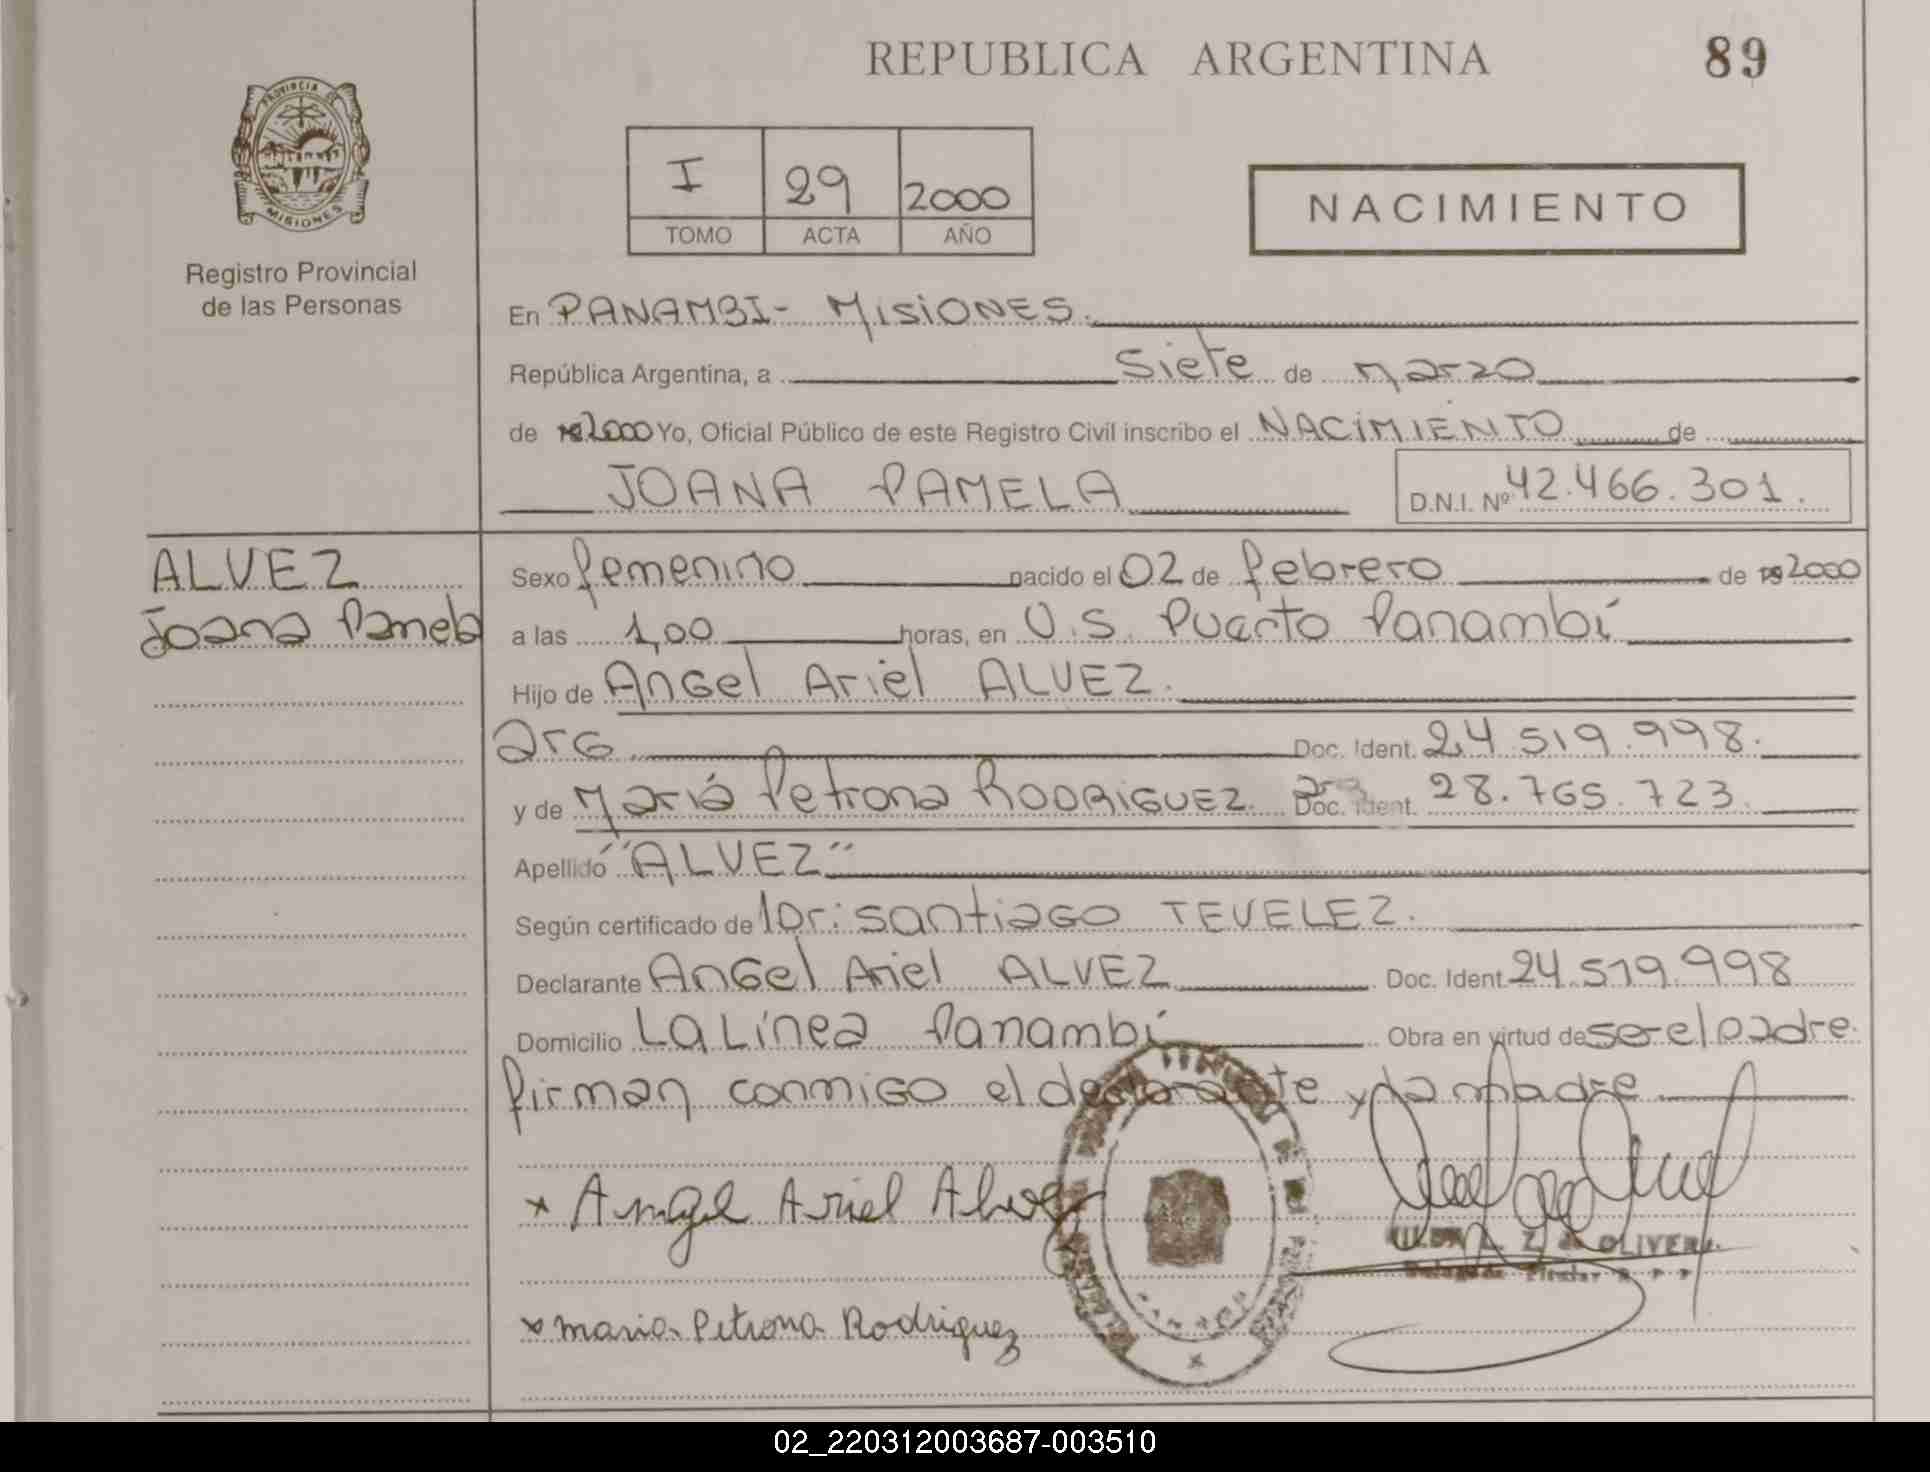 REPUBLICA ARGENTINA
89
PROVINCIA DE
MISIONES
Registro Provincial
de las Personas
I 29 2000
TOMO ACTA AÑO
NACIMIENTO
En PANAMBI- MISIONES.
República Argentina, a siete de marzo
de 2000 Yo, Oficial Público de este Registro Civil inscribo el NACIMIENTO de
JOANA PAMELA
D.N.I. Nº 42.466.301.
ALVEZ
Joana Pamela
Sexo femenino nacido el 02 de febrero de 2000
a las 1,00 horas, en U.S. Puerto Panambí
Hijo de Angel Ariel ALVEZ.
arg Doc. Ident. 24.519.998.
y de María Petrona RODRIGUEZ arg Doc. Ident. 28.765.723.
Apellido "ALVEZ"
Según certificado de Dr: Santiago TEVELEZ.
Declarante Angel Ariel ALVEZ Doc. Ident. 24.519.998
Domicilio La Línea Panambí Obra en virtud de ser el padre.
firman conmigo el declarante y la madre
x Angel Ariel Alvez
Z. de OLIVERA
Delegada Titular R P P
x maria Petrona Rodriguez
02_220312003687-003510